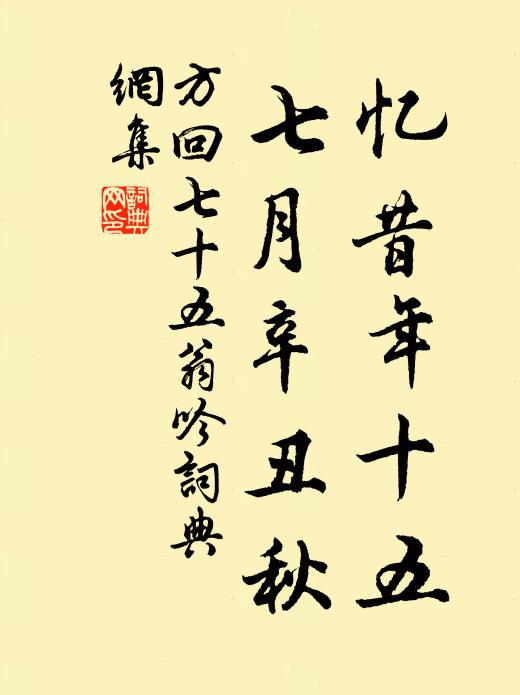 忆昔年十五
七月辛丑秋
方回七十五翁吟詞典
網集
詞典
网印